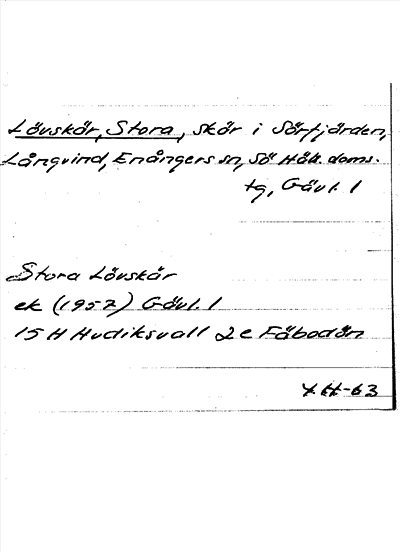 Lövskär, Stora, skär i Sörfjärden,
Långvind, Enångers sn, Sö Häls. doms.
tg, Gävl. l
Stora Lövskär
ek (1957) Gävl. l
15 H Hudiksvall 2e Fäbodön